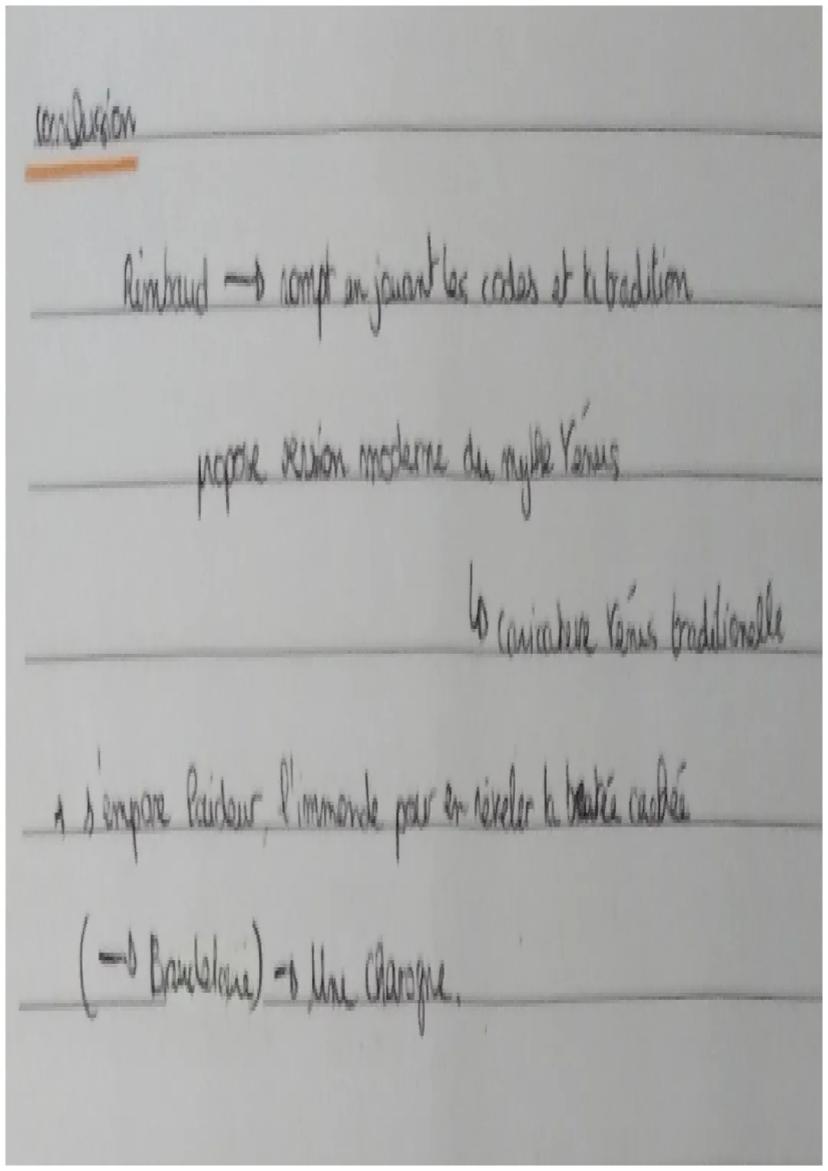 Conclusion
Rimbaud → rompt en jouant les codes et la tradition
propose version moderne du mythe Vénus
↳ caricature Vénus traditionelle
s'empare laideur, l'immonde pour en révéler la beauté cachée
(→ Baudelaire) → Une Charogne.